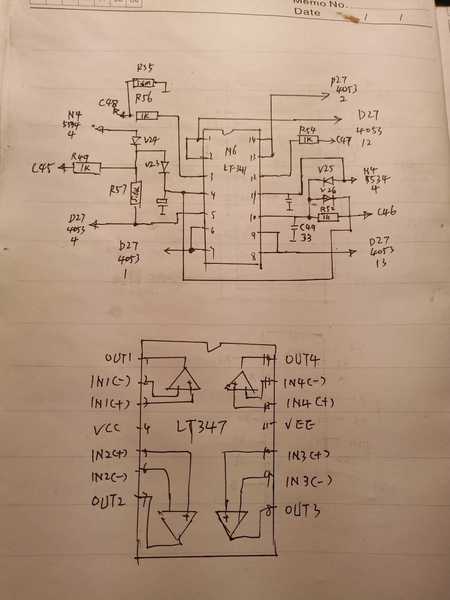 Memo No.
Date / /
R55
R56
1K
C48
N4
5534
4
V24
C45
R49
1K
V23
R57
D27
4053
4
D27
4053
1
N6
1
2
3
4
5
6
7
14
13
12
11
10
9
8
R54
1K
C47
D27
4053
2
D27
4053
12
V25
V26
N4
5534
4
R52
1K
C46
C49
33
D27
4053
13
OUT1
1
14
OUT4
IN1(-)
2
13
IN4(-)
IN1(+)
3
12
IN4(+)
VCC
4
LT347
11
VEE
IN2(+)
5
10
IN3(+)
IN2(-)
6
9
IN3(-)
OUT2
7
8
OUT3